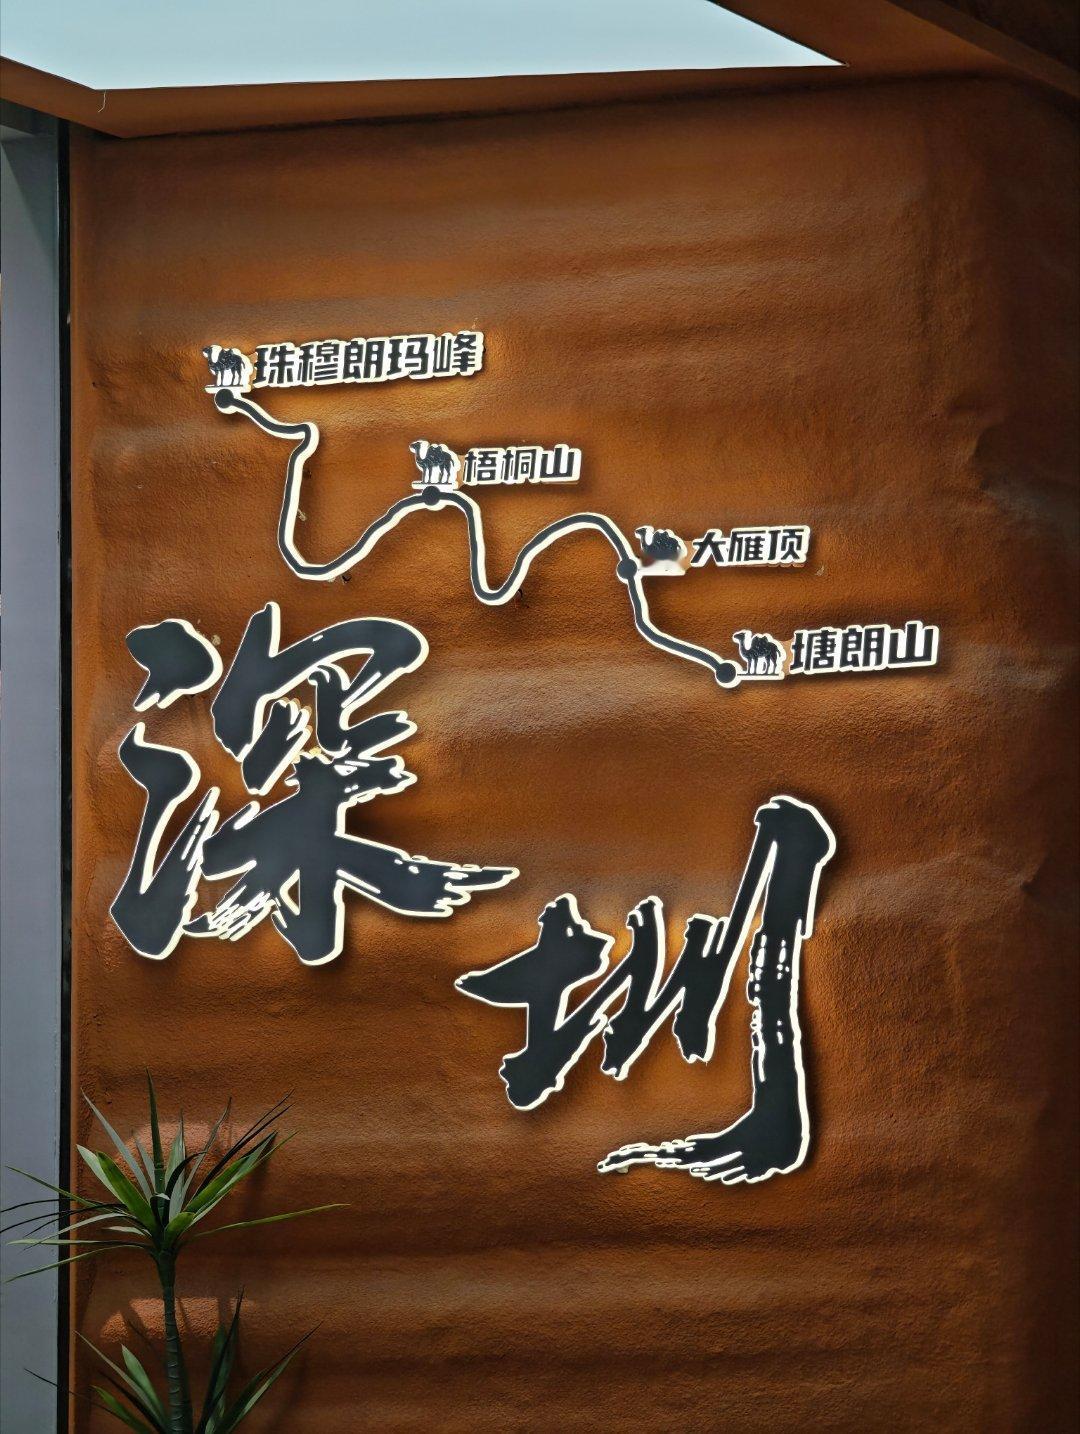 珠穆朗玛峰
梧桐山
大雁顶
塘朗山
深圳